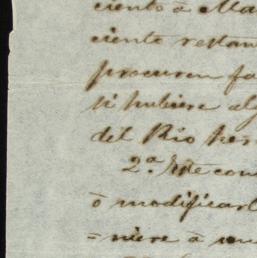 ciento à Ma
ciento restan
procuren fa
si hubiere al
del Rio
2ª. Este con
ò modificarl
=niere à un